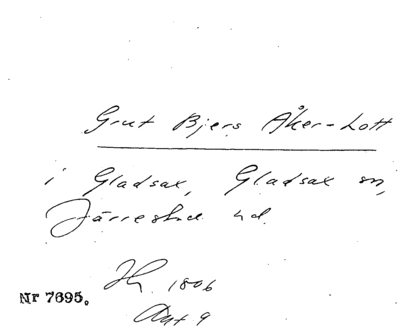 Grut Bjers Åker-Lott
i Gladsax, Gladsax sn,
Järrestad hd.
1806
Nr 7695.
Akt 9